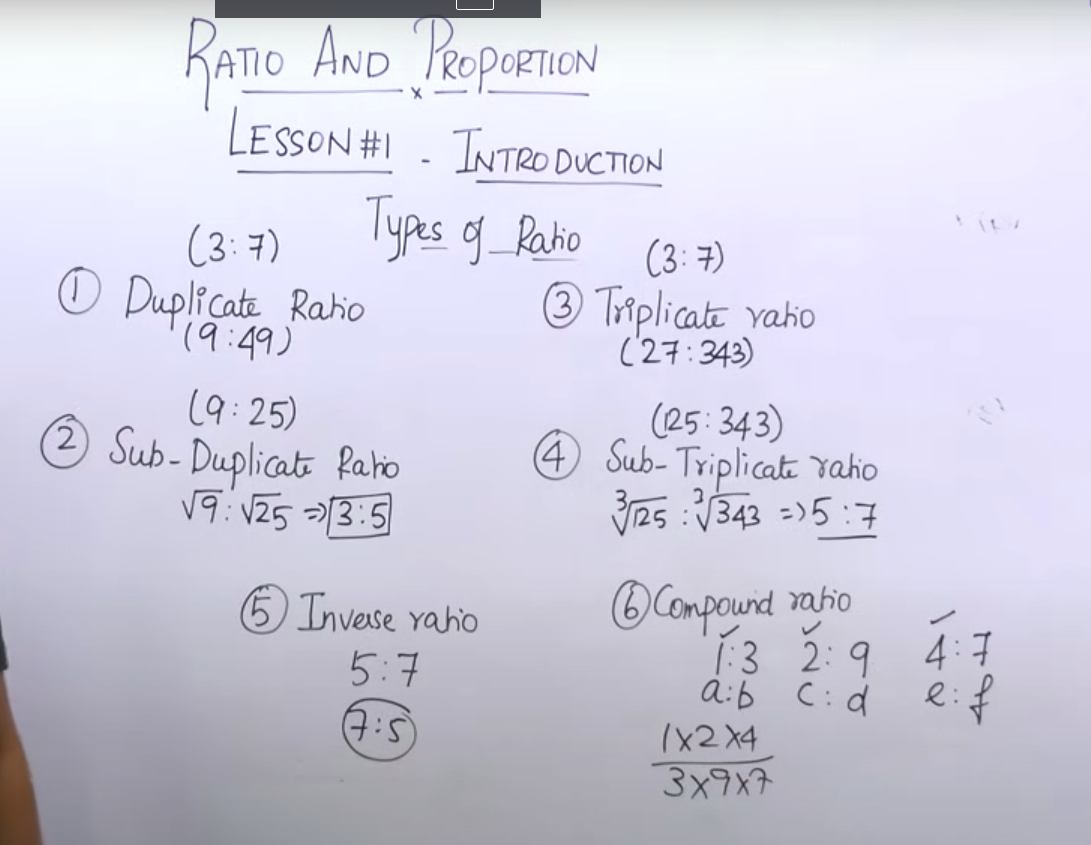 RATIO AND PROPORTION
LESSON #1 - INTRODUCTION
Types of Ratio
(3:7)
① Duplicate Ratio
(9:49)
(3:7)
③ Triplicate ratio
(27:343)
(9:25)
② Sub-Duplicate Ratio
√9:√25 => 3:5
(125:343)
④ Sub-Triplicate ratio
∛125:∛343 => 5:7
⑤ Inverse ratio
5:7
7:5
⑥ Compound ratio
1:3 2:9 4:7
a:b c:d e:f
1x2x4
3x9x7